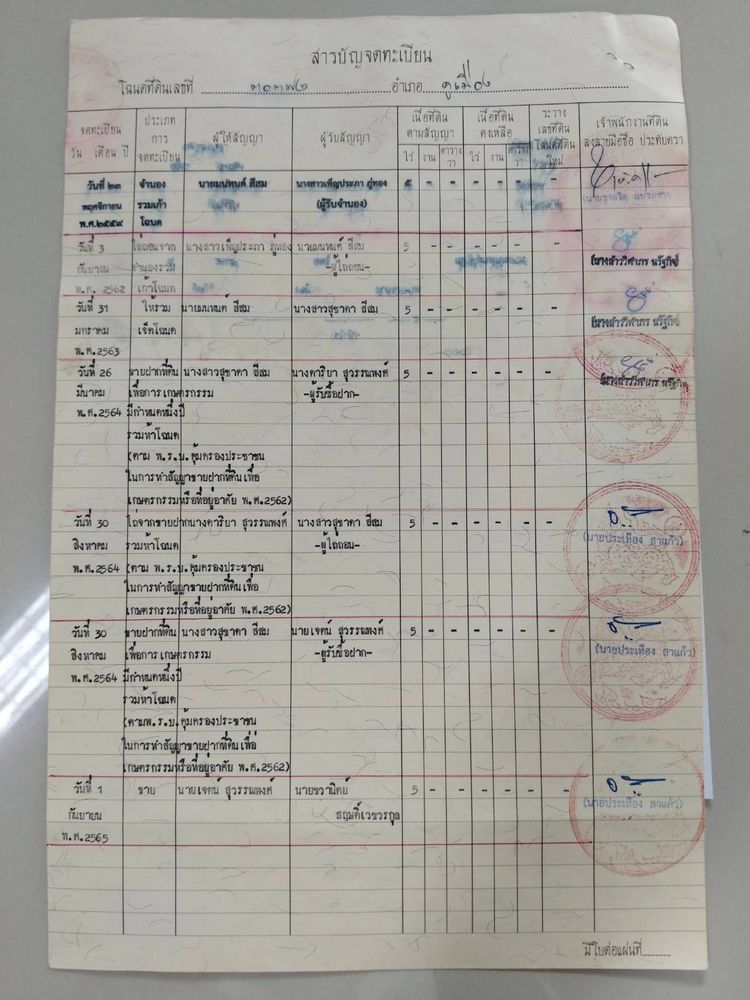 สารบัญจดทะเบียน
โฉนดที่ดินเลขที่ ๓๐๓๗๒ อำเภอ คูเมือง
จดทะเบียน วัน เดือน ปี ประเภทการจดทะเบียน ผู้ให้สัญญา ผู้รับสัญญา เนื้อที่ดินตามสัญญา เนื้อที่ดินคงเหลือ ระวาง เลขที่ดิน โฉนดที่ดินใหม่ เจ้าพนักงานที่ดิน ลงลายมือชื่อ ประทับตรา
ไร่ งาน ตาราง วา ไร่ งาน ตาราง วา
วันที่ ๒๓ จำนอง นายมนทนต์ สีสม นางสาวเพ็ญประภา ภู่ทอง ๕ - - - - - -
พฤศจิกายน รวมเก้า (ผู้รับจำนอง)
พ.ศ.๒๕๕๙ โฉนด
วันที่ 3 ไถ่ถอนจาก นางสาวเพ็ญประภา ภู่ทอง นายมนทนต์ สีสม 5 - - - - - -
กันยายน จำนองรวม -ผู้ไถ่ถอน- (นางสาววิศาภร นรัฐกิจ)
พ.ศ. 2562 เก้าโฉนด
วันที่ 31 ให้รวม นายมนทนต์ สีสม นางสาวสุชาดา สีสม 5 - - - - - -
มกราคม เจ็ดโฉนด (นางสาววิศาภร นรัฐกิจ)
พ.ศ.2563
วันที่ 26 ขายฝากที่ดิน นางสาวสุชาดา สีสม นางดาริยา สุวรรณพงศ์ 5 - - - - - -
มีนาคม เพื่อการเกษตรกรรม -ผู้รับซื้อฝาก- (นางสาววิศาภร นรัฐกิจ)
พ.ศ.2564 มีกำหนดหนึ่งปี
รวมห้าโฉนด
(ตาม พ.ร.บ.คุ้มครองประชาชน
ในการทำสัญญาขายฝากที่ดินเพื่อ
เกษตรกรรมหรือที่อยู่อาศัย พ.ศ.2562)
วันที่ 30 ไถ่จากขายฝาก นางดาริยา สุวรรณพงศ์ นางสาวสุชาดา สีสม 5 - - - - - -
สิงหาคม รวมห้าโฉนด -ผู้ไถ่ถอน- (นายประเทือง ลาแก้ว)
พ.ศ.2564 (ตาม พ.ร.บ.คุ้มครองประชาชน
ในการทำสัญญาขายฝากที่ดินเพื่อ
เกษตรกรรมหรือที่อยู่อาศัย พ.ศ.2562)
วันที่ 30 ขายฝากที่ดิน นางสาวสุชาดา สีสม นายเจตน์ สุวรรณพงศ์ 5 - - - - - -
สิงหาคม เพื่อการเกษตรกรรม -ผู้รับซื้อฝาก- (นายประเทือง ลาแก้ว)
พ.ศ.2564 มีกำหนดหนึ่งปี
รวมห้าโฉนด
(ตามพ.ร.บ.คุ้มครองประชาชน
ในการทำสัญญาขายฝากที่ดินเพื่อ
เกษตรกรรมหรือที่อยู่อาศัย พ.ศ.2562)
วันที่ 1 ขาย นายเจตน์ สุวรรณพงศ์ นายชวานิตย์ 5 - - - - - -
กันยายน สฤษดิ์เวชวรกุล (นายประเทือง ลาแก้ว)
พ.ศ.2565
มีใบต่อแผ่นที่